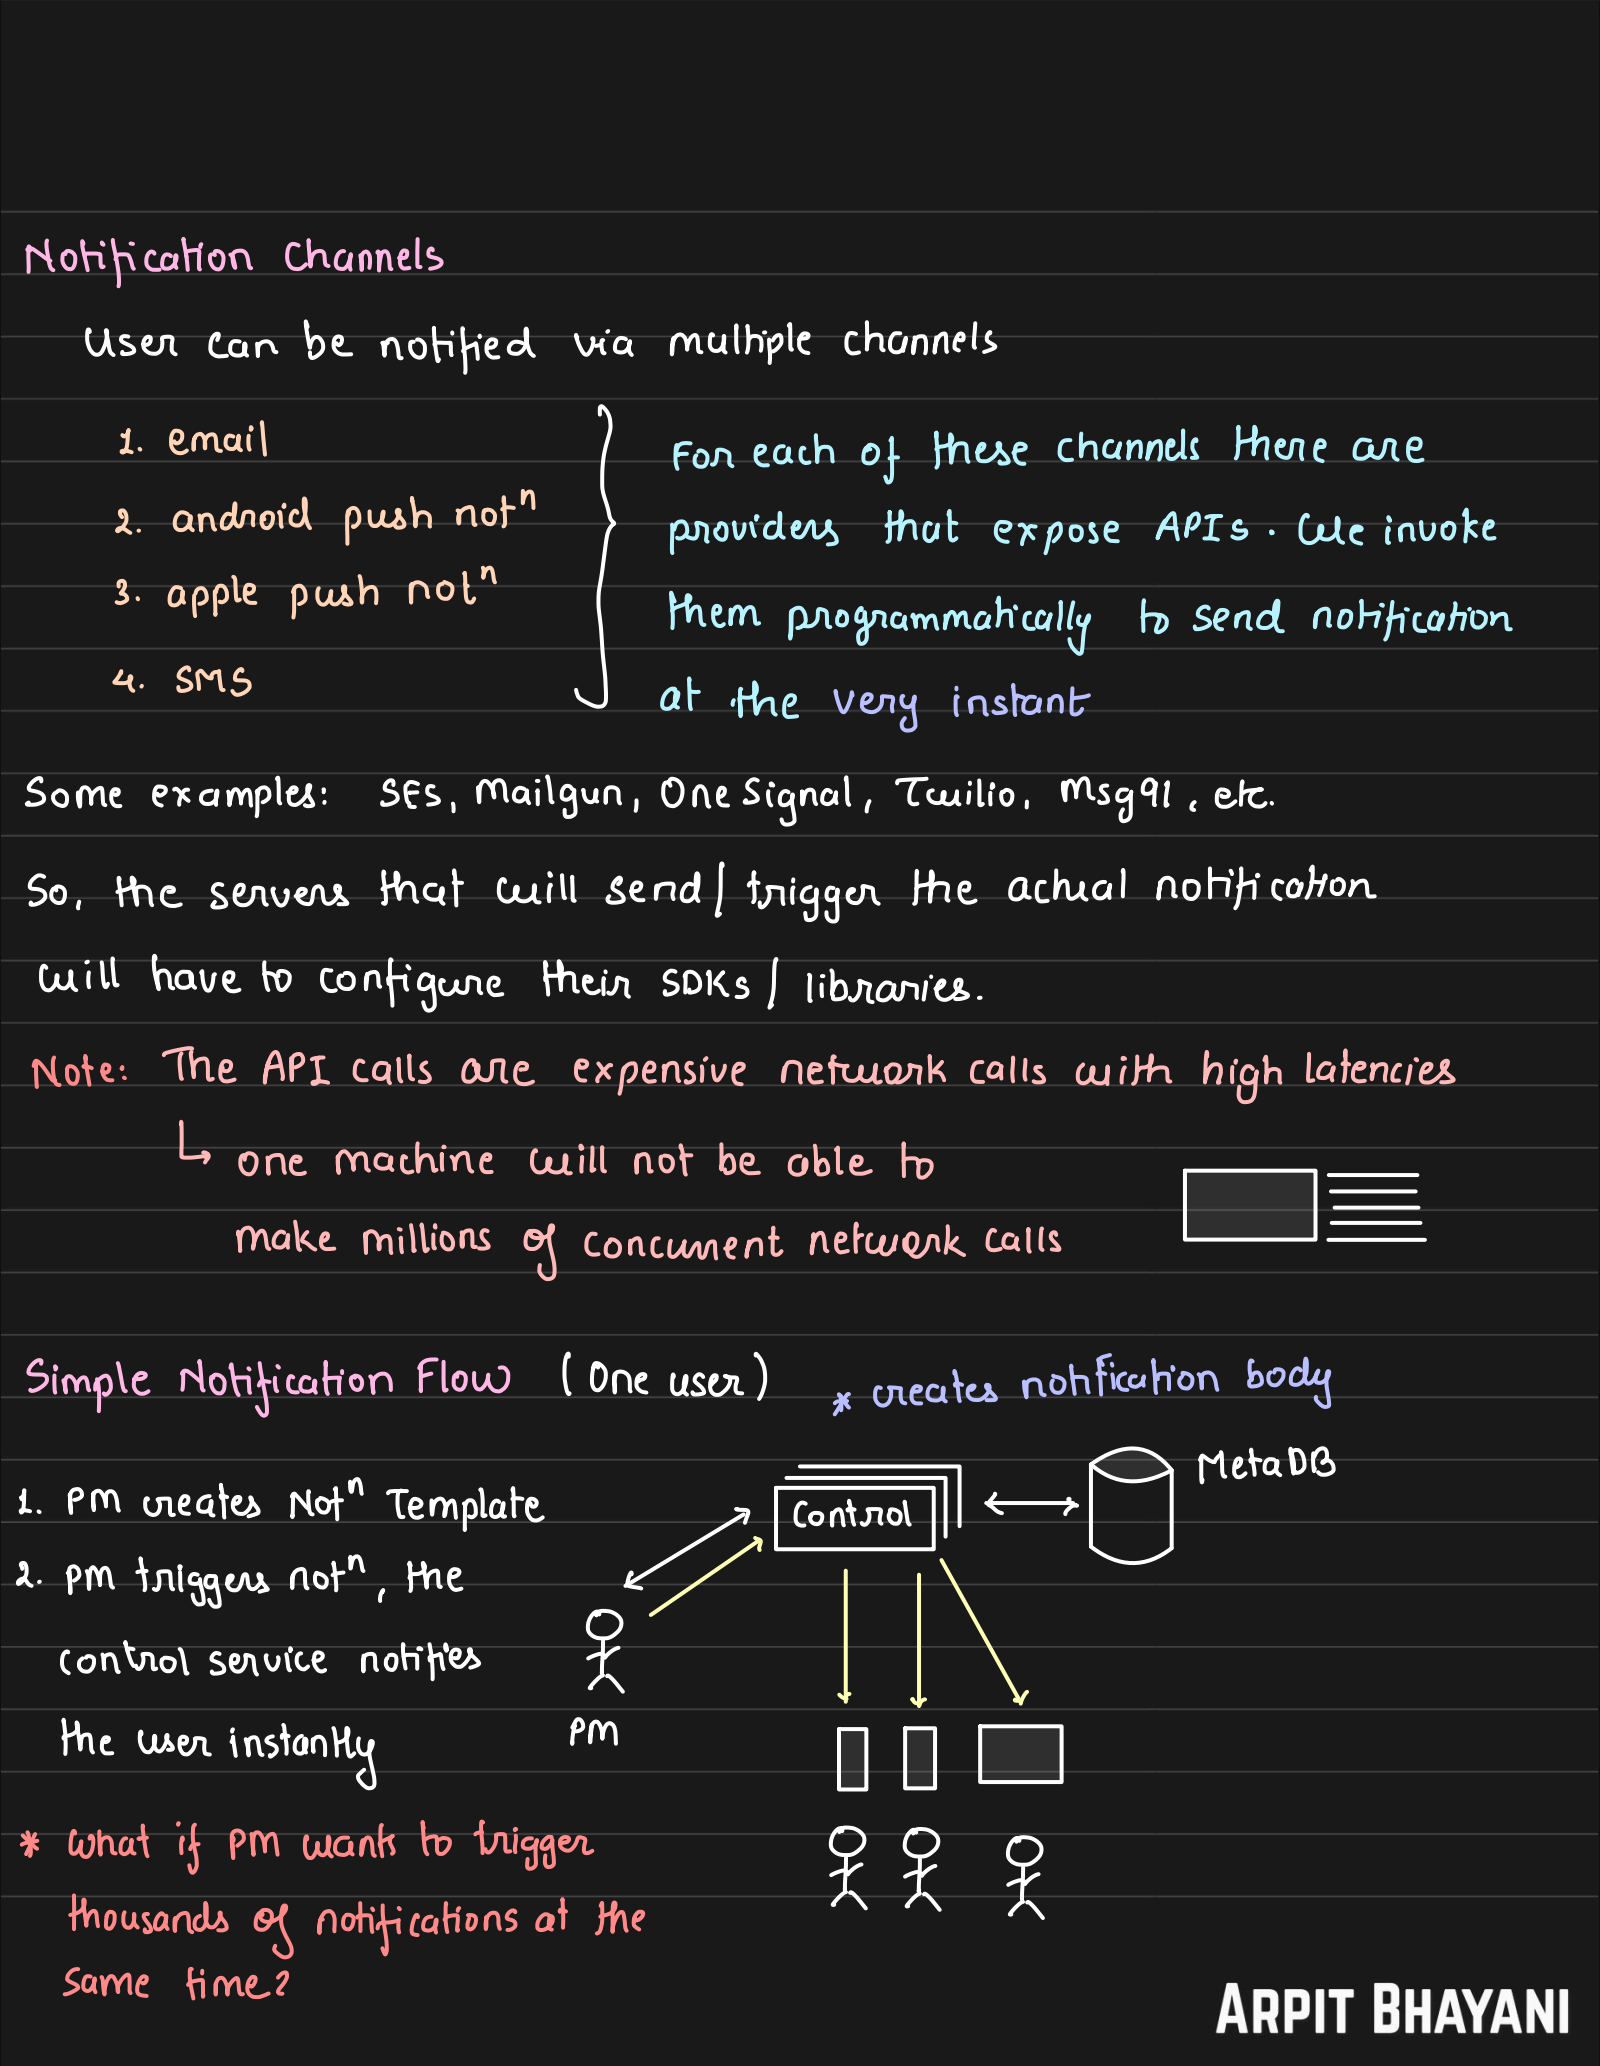 Notification Channels
User can be notified via multiple channels
1. email
2. android push notⁿ
3. apple push notⁿ
4. SMS
For each of these channels there are
providers that expose APIs. We invoke
them programmatically to send notification
at the very instant
Some examples: SES, Mailgun, One Signal, Twilio, Msg91, etc.
So, the servers that will send/trigger the actual notification
will have to configure their SDKs/libraries.
Note: The API calls are expensive network calls with high latencies
↳ one machine will not be able to
make millions of concurrent network calls
Simple Notification Flow (One user)
* creates notification body
1. PM creates Notⁿ Template
2. PM triggers notⁿ, the
control service notifies
the user instantly
Control
MetaDB
PM
* What if PM wants to trigger
thousands of notifications at the
same time?
ARPIT BHAYANI